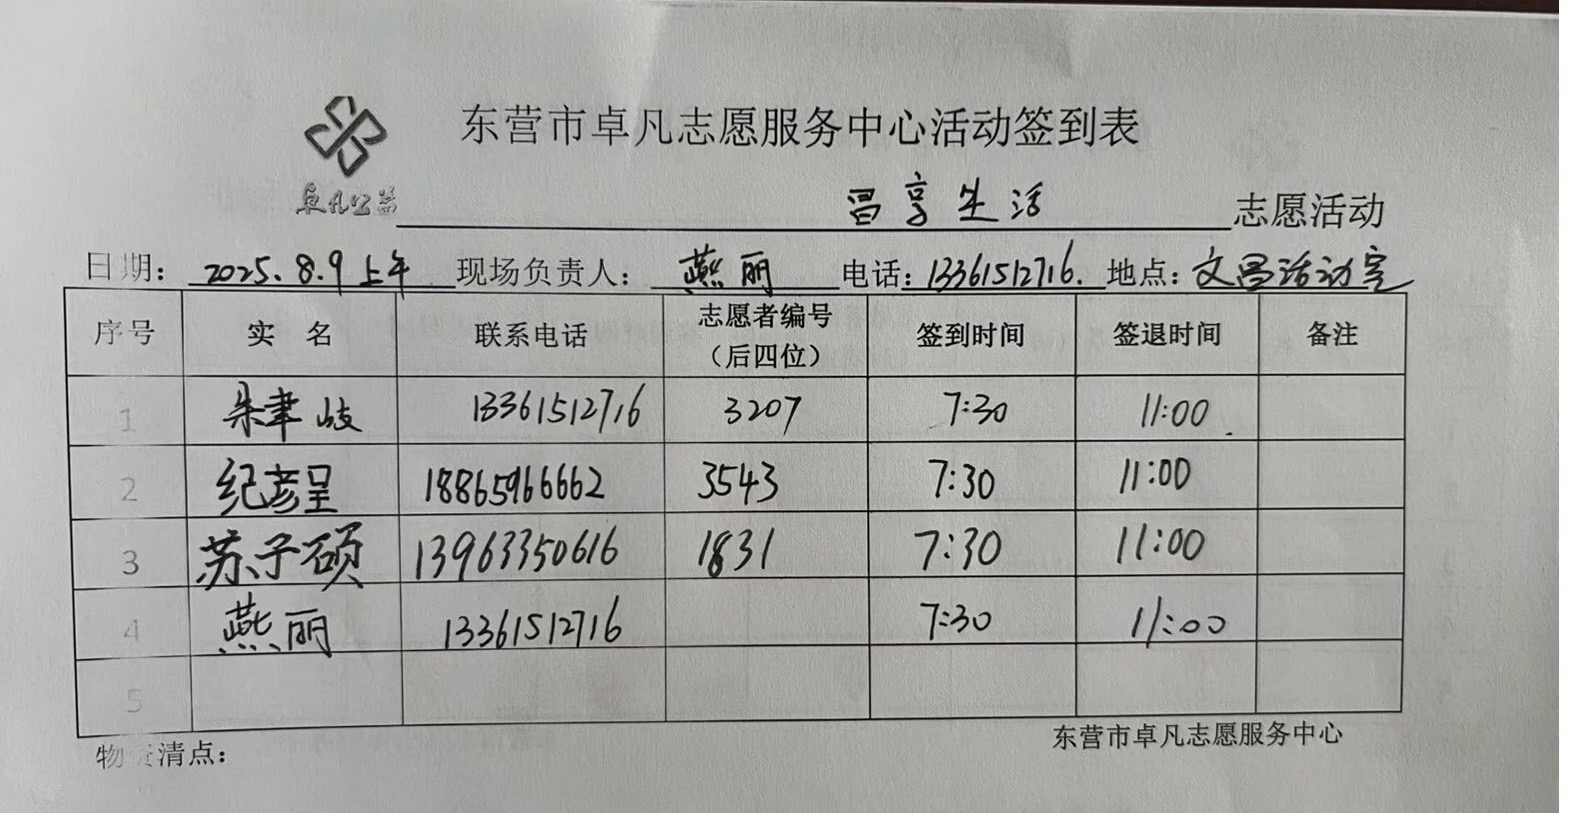 东营市卓凡志愿服务中心活动签到表
卓凡公益
昌享生活 志愿活动
日期: 2025.8.9上午 现场负责人: 燕丽 电话: 13361512716. 地点: 文昌活动室
序号 实 名 联系电话 志愿者编号（后四位） 签到时间 签退时间 备注
1 朱聿岐 13361512716 3207 7:30 11:00
2 纪彦呈 18865966662 3543 7:30 11:00
3 苏子硕 13963350616 1831 7:30 11:00
4 燕丽 13361512716 7:30 11:00
5
物资清点:
东营市卓凡志愿服务中心